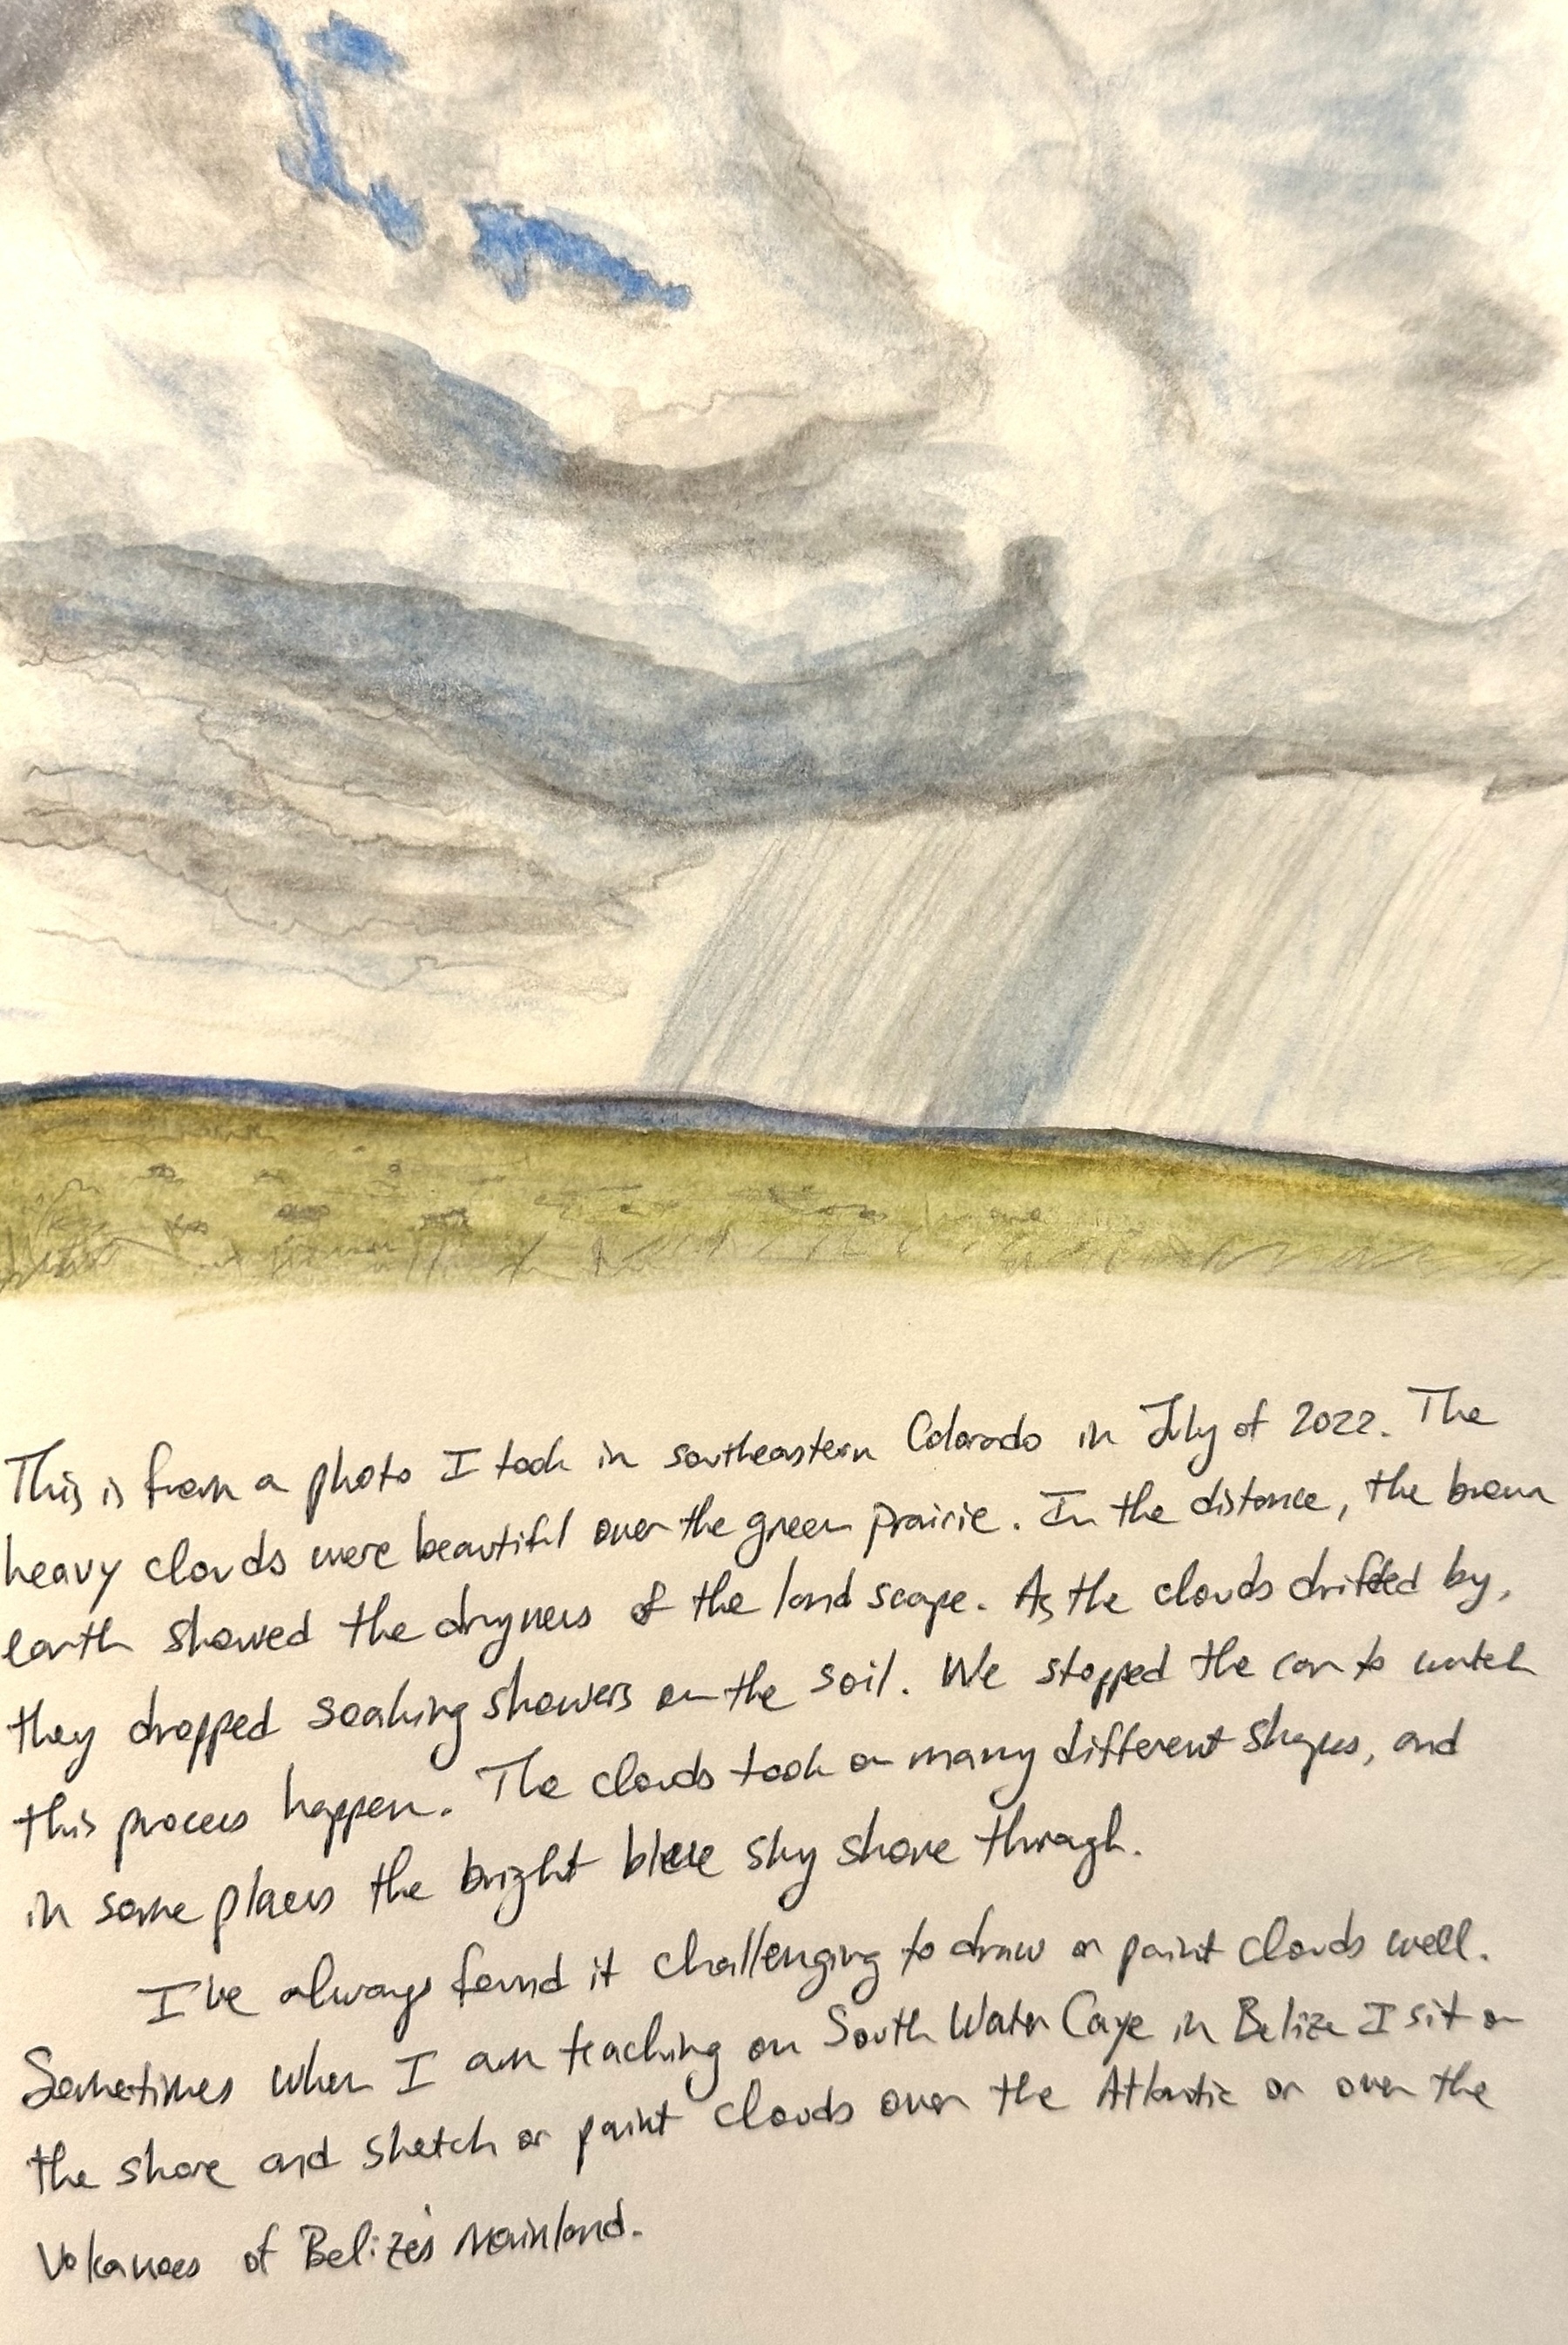 This is from a photo I took in southeastern Colorado in July of 2022. The
heavy clouds were beautiful over the green prairie. In the distance, the brown
earth showed the dryness of the landscape. As the clouds drifted by,
they dropped soaking showers on the soil. We stopped the car to watch
this process happen. The clouds took on many different shapes, and
in some places the bright blue sky shone through.
I've always found it challenging to draw or paint clouds well.
Sometimes when I am teaching on South Water Caye in Belize I sit on
the shore and sketch or paint clouds over the Atlantic or over the
Volcanoes of Belize's mainland.